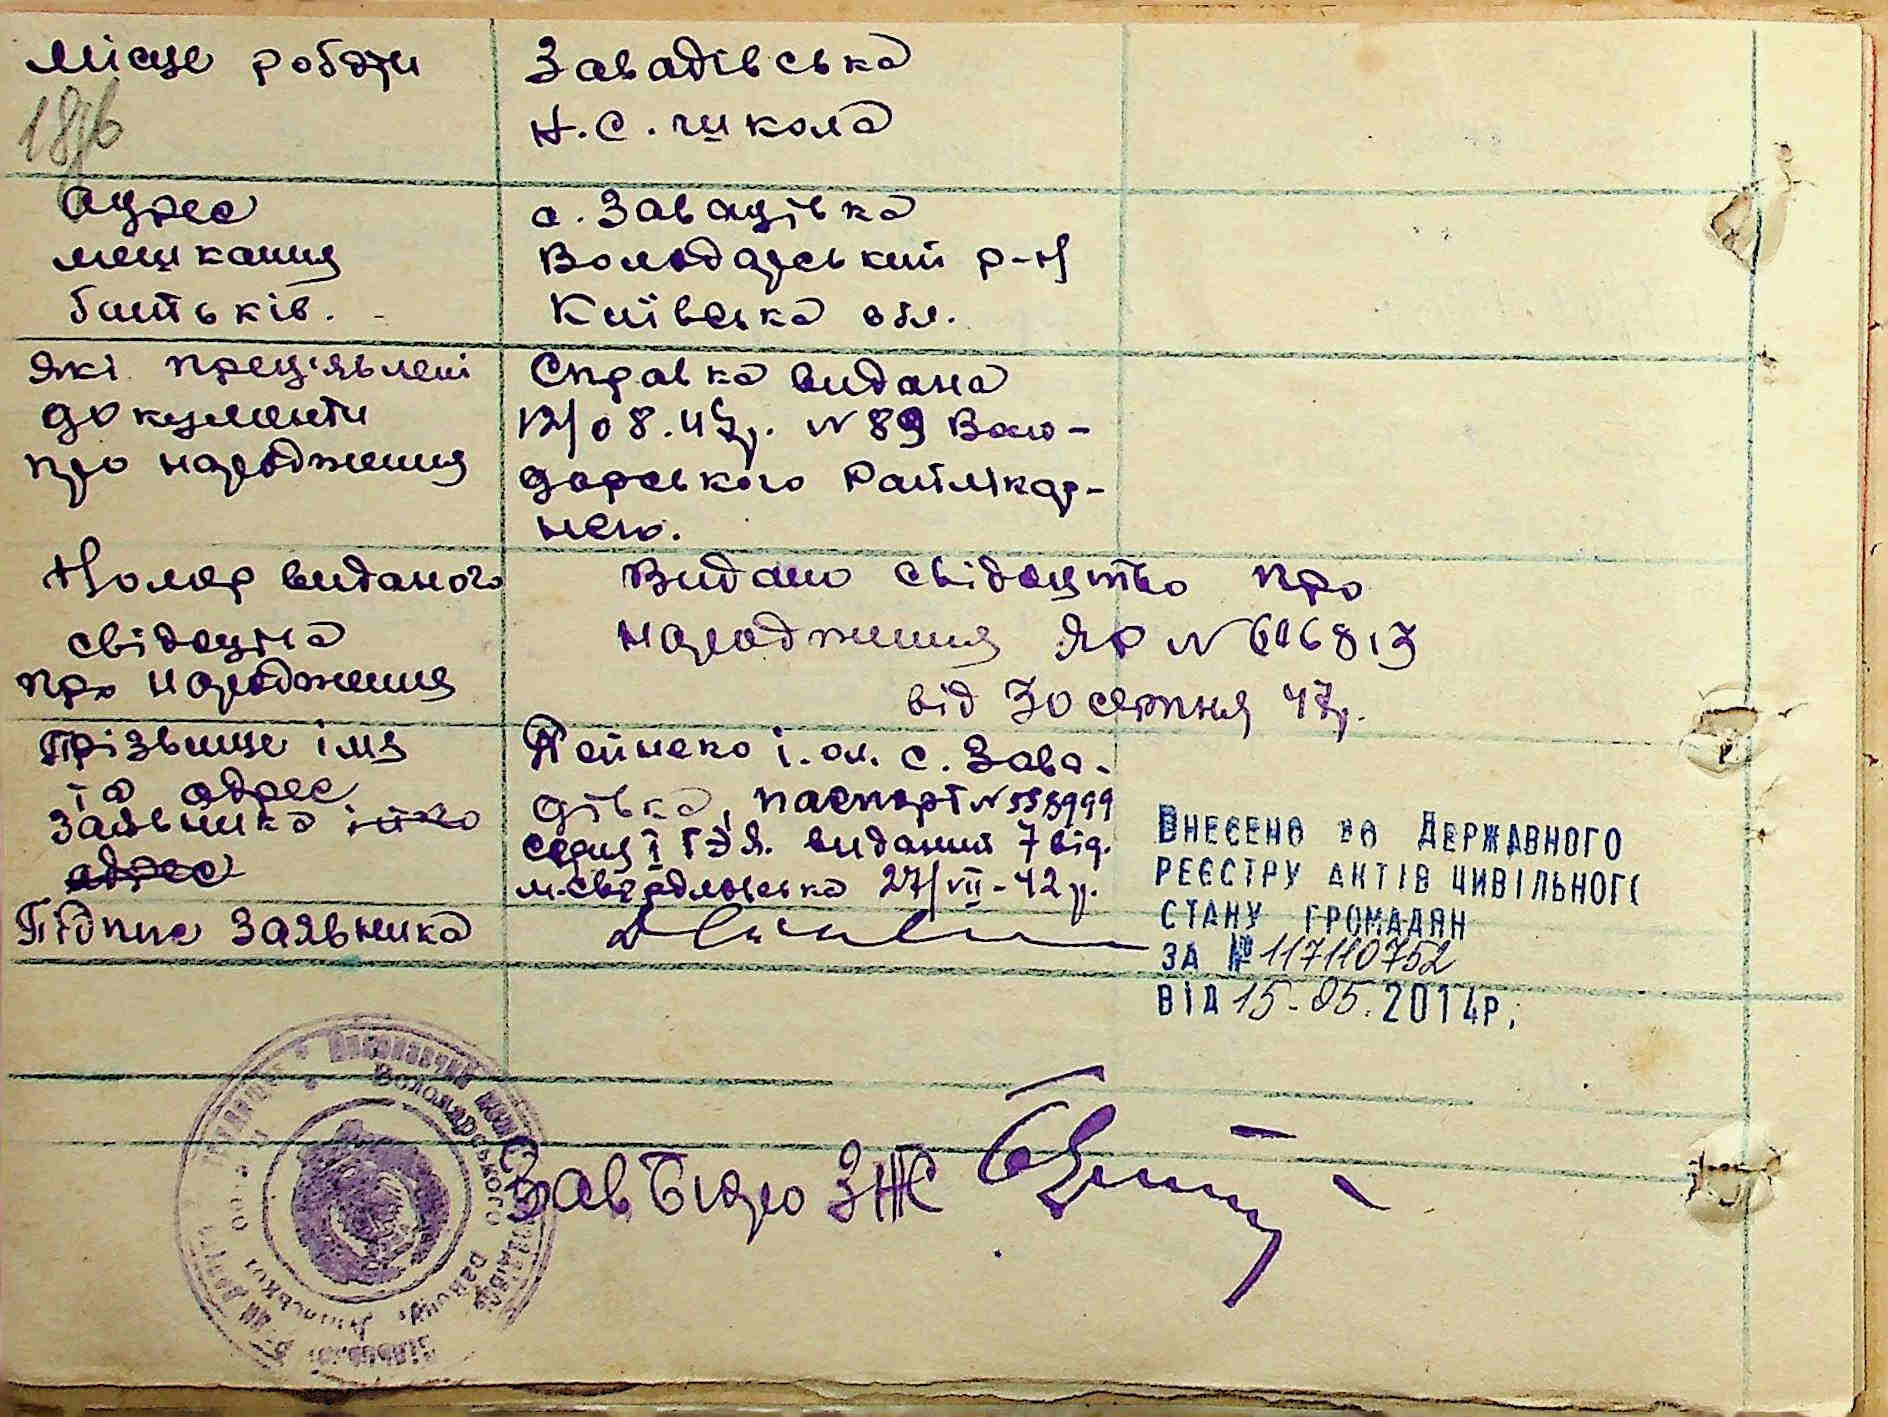 Місце роботи
Завадівська
Н.С. школа
18зв
адрес
мешкання
батьків.
с. Завадівка
Володарський р-н
Київська обл.
які пред'явлені
документи
про народження
Справка видана
12/08.47р. №89 Воло-
дарського Райлікар-
нею.
Номер виданого
свідоцтва
про народження
Видано свідоцтво про
народження ЯР № 616813
від 30 серпня 47р.
Прізвище імя
та адрес
Заявника
адрес
і. ол. с. Зава-
дівка, паспорт №
серия І ГЭЯ. виданий 7 від.
м. Свердловська 27/VII-42р.
Підпис Заявника
ВНЕСЕНО ДО ДЕРЖАВНОГО
РЕЄСТРУ АКТІВ ЦИВІЛЬНОГО
СТАНУ ГРОМАДЯН
ЗА № 117110752
ВІД 15-05.2014р.
Володарського
Зав Бюро ЗАГС